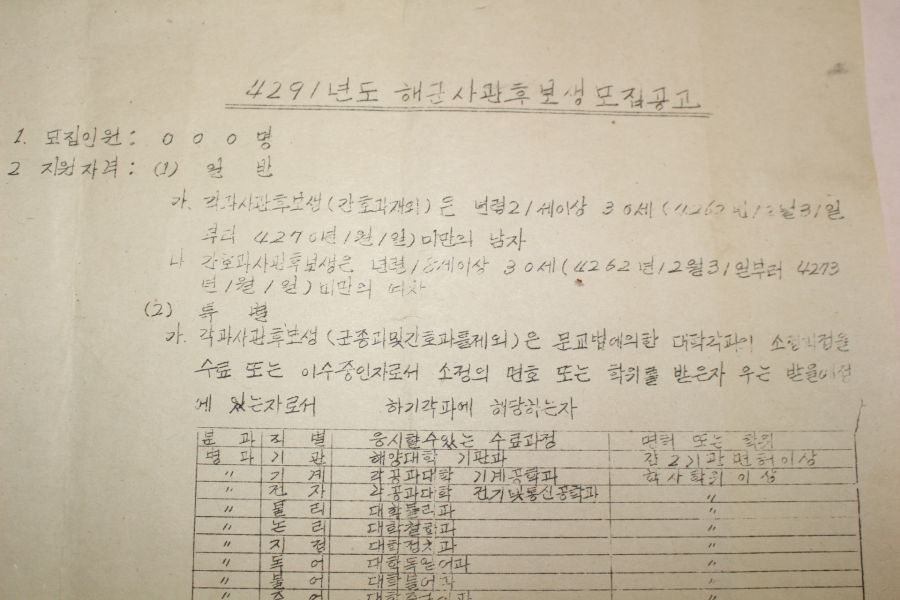 4291년도 해군사관후보생모집공고
1. 모집인원: 0 0 0명
2 지원자격: (1) 일 반
가. 각과사관후보생(간호과제외)은 년령21세이상 30세(4262년12월31일
부터 4270년1월1일)미만의 남자
나 간호과사관후보생은 년령18세이상 30세(4262년12월31일부터 4273
년1월1일)미만의 여자
(2) 특 별
가. 각과사관후보생(군종과및간호과를제외)은 문교법에의한 대학각과의 소정과정을
수료 또는 이수중인자로서 소정의 면허 또는 학위를 받은자 우는 받을예정
에 있는자로서 하기각과에 해당하는자
분 과 직 별 응시할수있는 수료과정 면허 또는 학위
병 과 기 관 해양대학 기관과 갑2기관면허이상
〃 기 계 각공과대학 기계공학과 학사학위 이상
〃 전 자 각공과대학 전기및통신공학과 〃
〃 물 리 대학물리과 〃
〃 논 리 대학철학과 〃
〃 지 정 대학정치과 〃
〃 독 어 대학독일어과 〃
〃 불 어 대학불어과 〃
〃